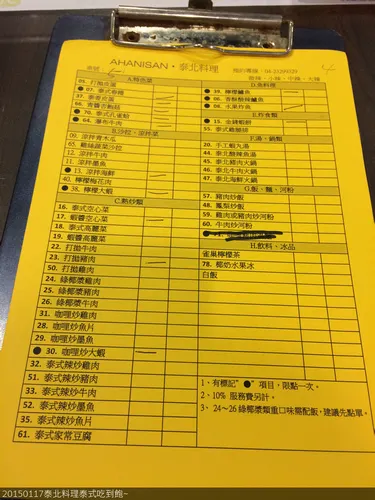 AHANISAN·泰北料理
桌號
預約專線：04-21299329
微辣、小辣、中辣、大辣
A.特色菜
05. 打拋皮蛋
●07. 泰式春捲
37. 泰泰皮蛋
●70. 泰式孔雀蛤
●64. 瀑布牛肉
B.沙拉、涼拌菜
09. 涼拌青木瓜
65. 雞絲蔬菜沙拉
12. 涼拌牛肉
11. 涼拌墨魚
●13. 涼拌海鮮
40. 檸檬梅花肉
●38. 檸檬大蝦
C.熱炒類
16. 泰式空心菜
17. 蝦醬空心菜
18. 泰式高麗菜
19. 蝦醬高麗菜
22. 打拋牛肉
23. 打拋豬肉
50. 打拋雞肉
24. 綠椰漿雞肉
25. 綠椰漿豬肉
26. 綠椰漿牛肉
31. 咖哩炒雞肉
28. 咖哩炒魚片
29. 咖哩炒墨魚
●30. 咖哩炒大蝦
32. 泰式辣炒雞肉
51. 泰式辣炒豬肉
33. 泰式辣炒牛肉
52. 泰式辣炒墨魚
35. 泰式辣炒魚片
61. 泰式家常豆腐
D.魚料理
●39. 檸檬鱸魚
●06. 香酥酸辣鱸魚
●08. 水果炸魚
E.炸食類
●15. 金錢蝦餅
55. 泰式雞腿排
F.湯、鍋類
20. 手工蝦丸湯
44. 泰北酸辣魚湯
45. 泰北豬肉火鍋
46. 泰北牛肉火鍋
47. 泰北海鮮火鍋
G.飯、麵、河粉
57. 豬肉炒飯
48. 鳳梨炒飯
59. 雞肉或豬肉炒河粉
60. 牛肉炒河粉
H.飲料、冰品
雀巢檸檬茶
78. 椰奶水果冰
白飯
1、有標記"●"項目，限點一次。
2、10% 服務費另計。
3、24～26 綠椰漿類重口味需配飯，建議先點單。
20150117泰北料理泰式吃到飽~